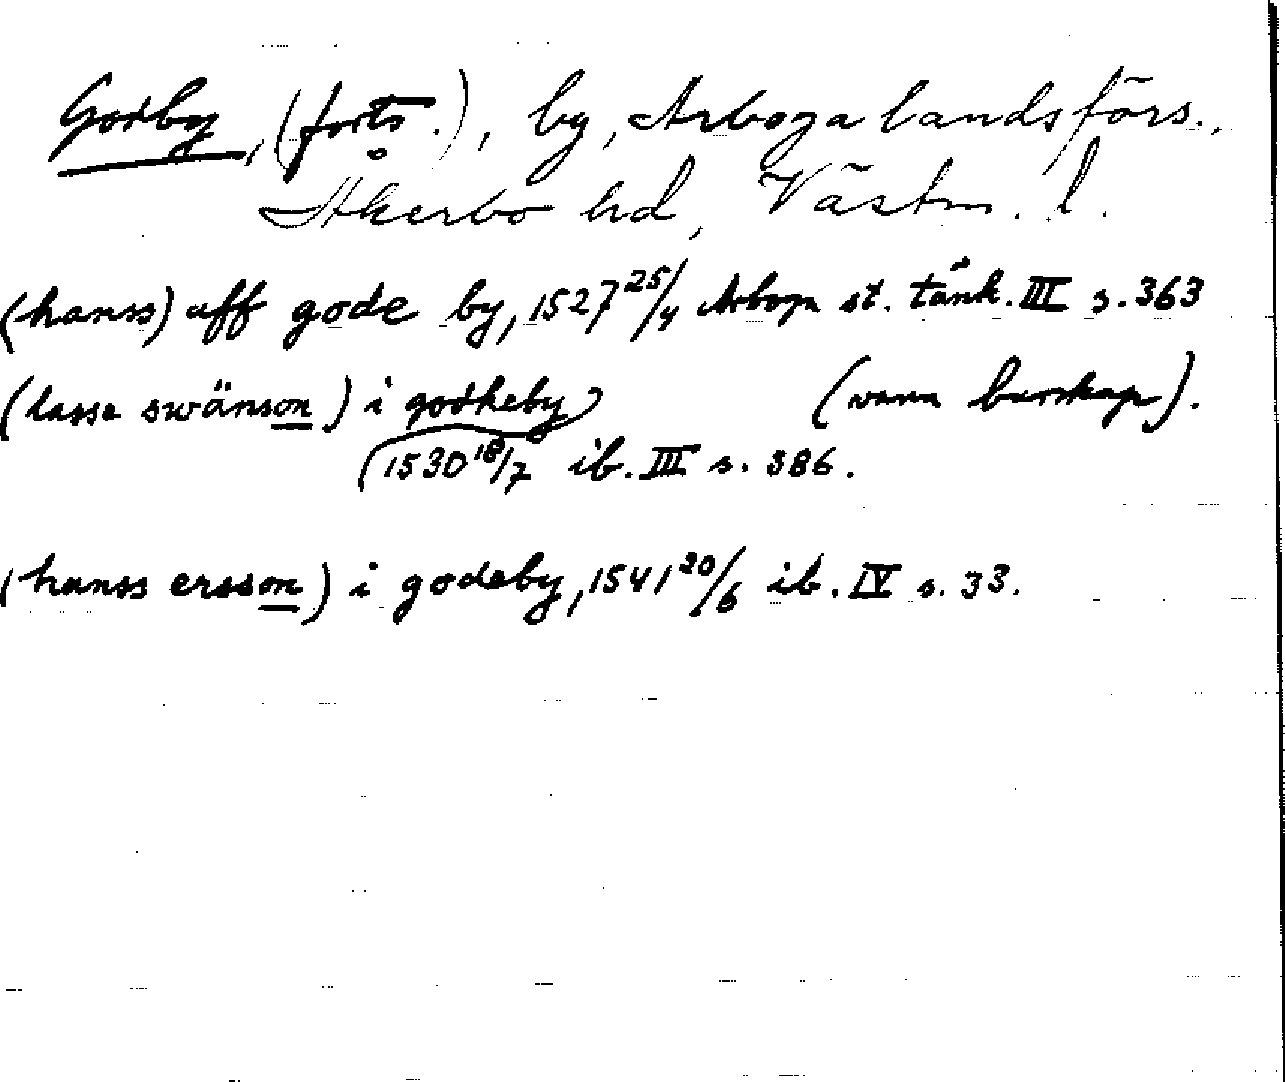 Godby, (forts.), by, Arboga landsförs.,
Åkerbo hd, Västm. l.
(hanss) aff gode by, 1527 25/4 Arboga st. tänk. III s. 363
(lasse swänson) i godheby (wann burskap).
1530 18/7 ib. III s. 386.
(hanss ersson) i godeby, 1541 20/6 ib. IV s. 33.